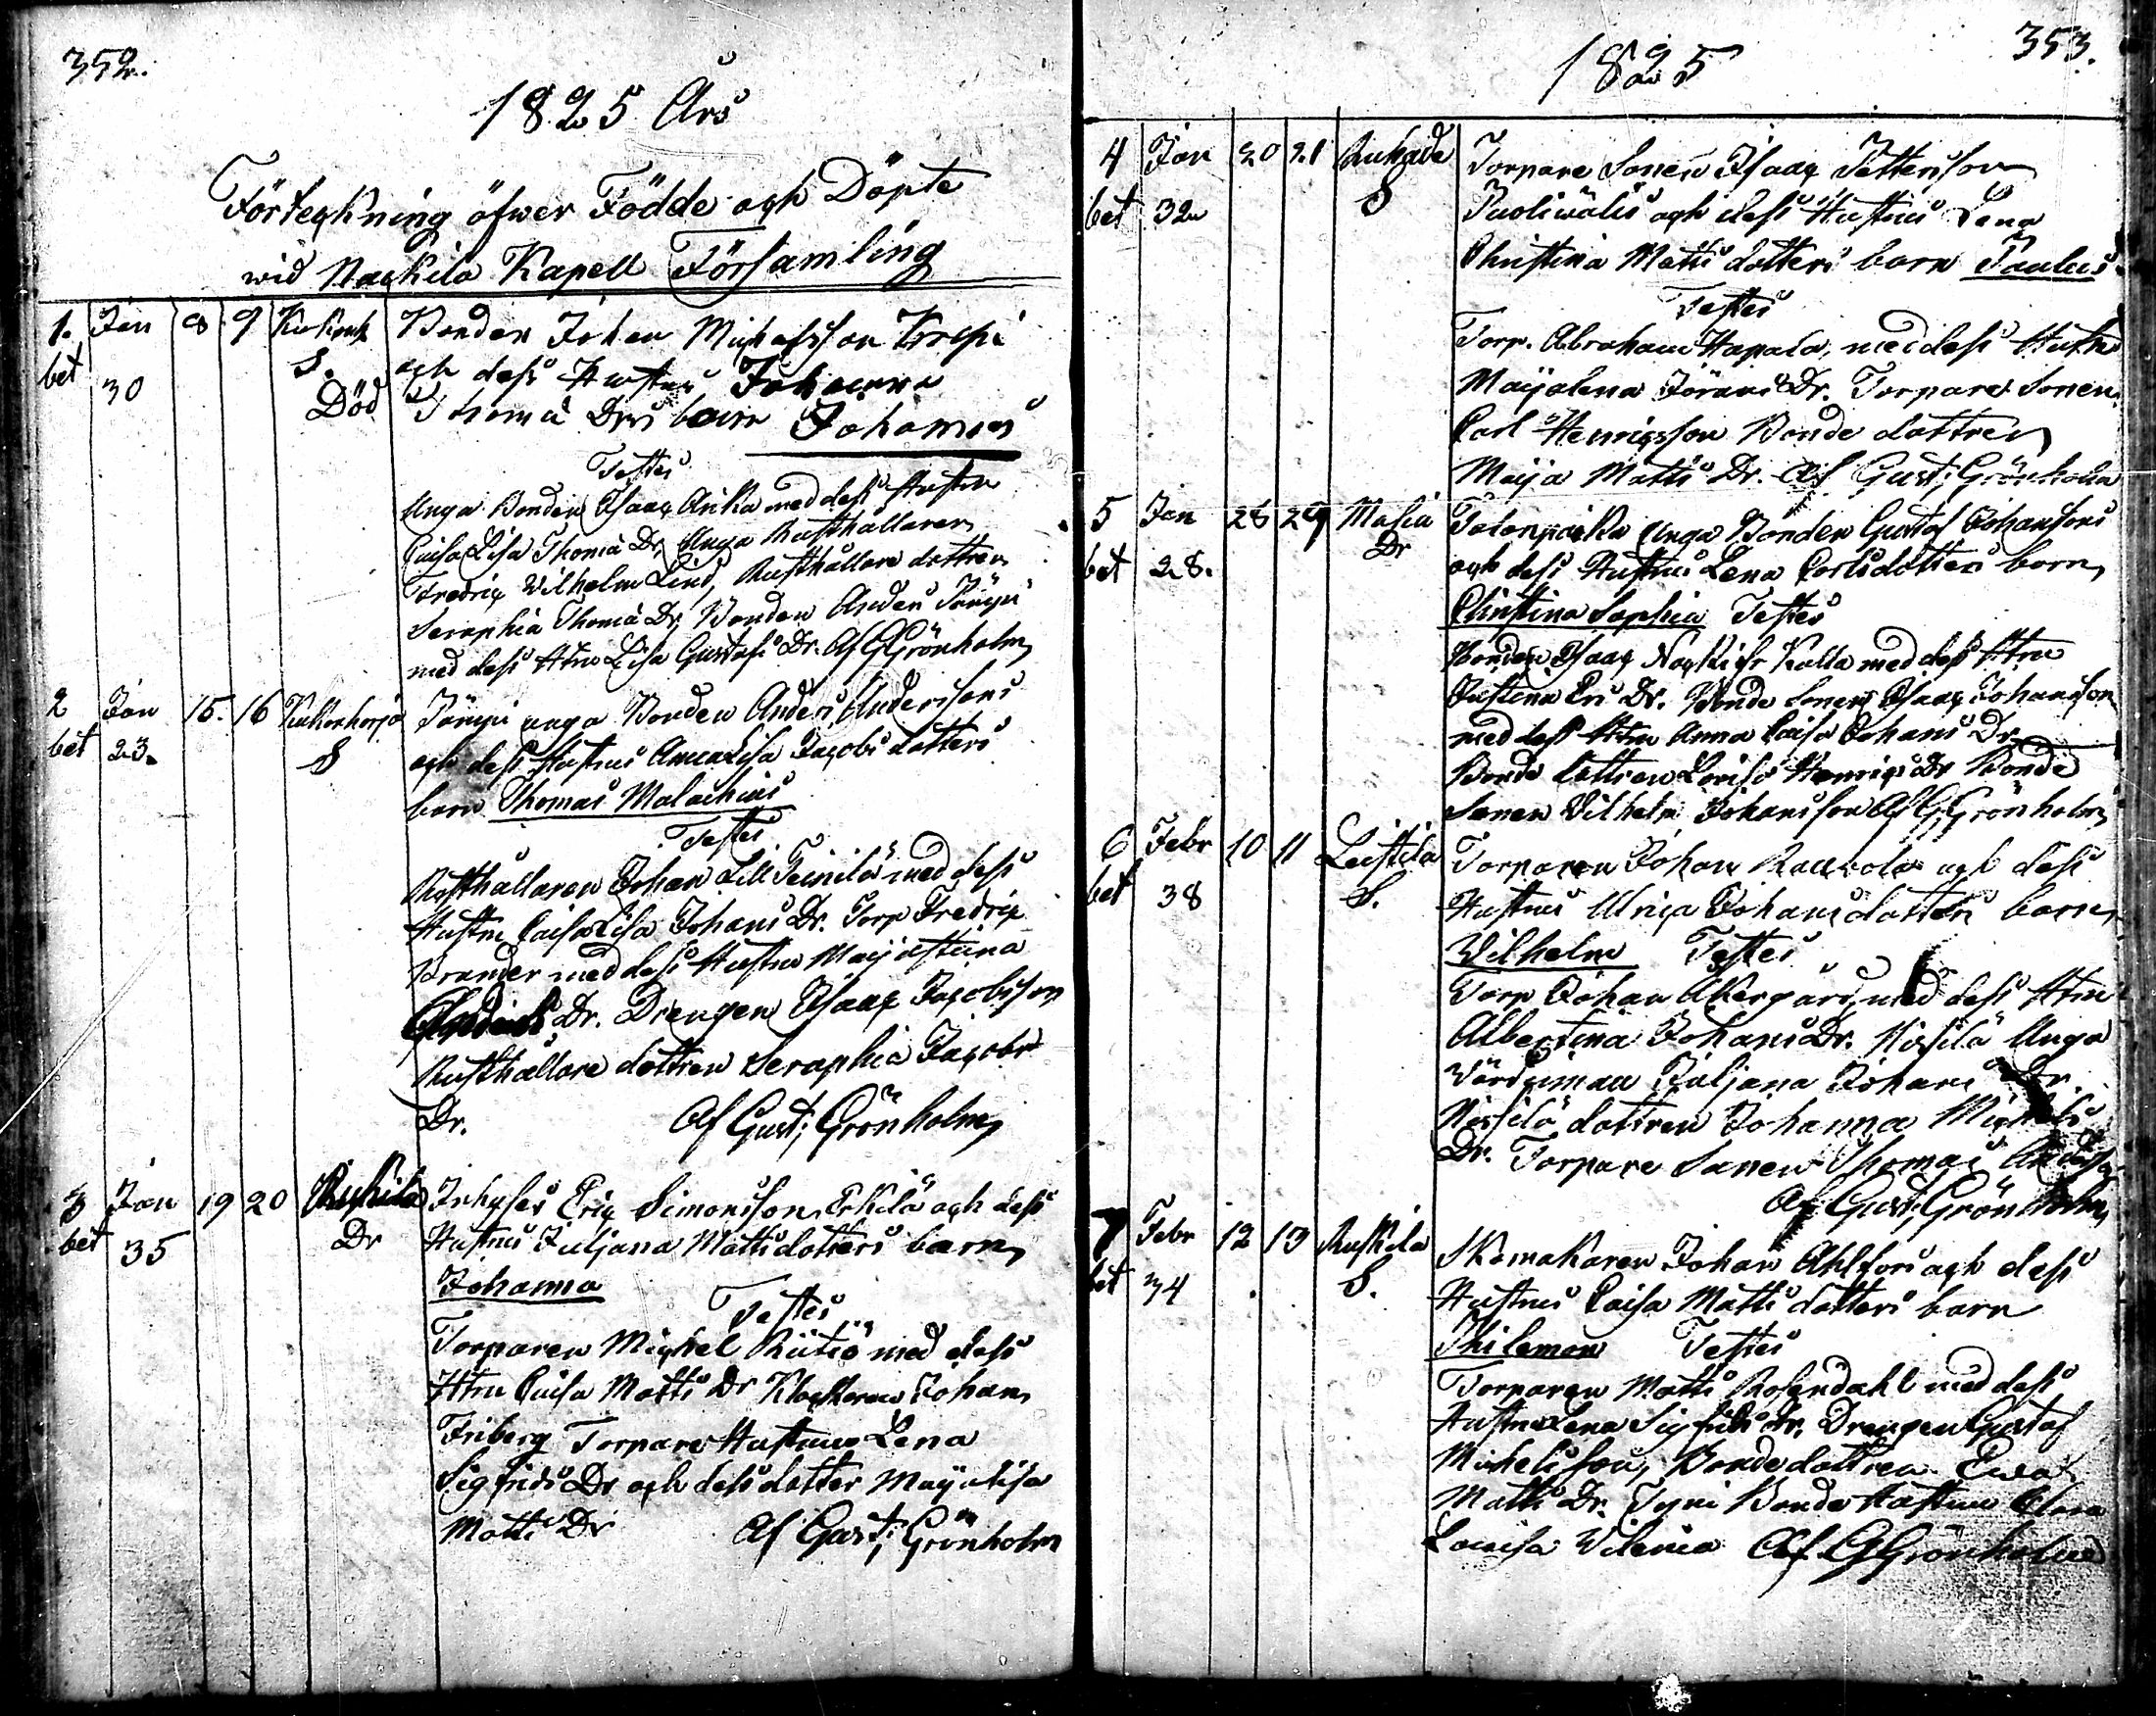 352.
1825 Års
Förteckning öfwer Födde och Döpte
wid Nackila Kapell Församling
1. Jan 8 9 Bonden Johan Michelsson Krispi
bet 30 S. och dess Hustrus Johanna
Död Thomæ Drs barn Johannes
Testes
Unga Bonden Isaac Anka med dess Hustru
Caisa Lisa Thomæ Dr, Unga Rusthållaren
Fredric Wilhelm Lind, Rusthållare dottren
Seraphia Thomæ Dr, Bonden Anders Pämpi
med dess Htru Lisa Gustafs Dr. Af G Grönholm
2 Jan 15. 16 Kukonharja Pämpi unga Bonden Anders Anderssons
bet 23. S och dess Hustrus Anna Lisa Jacobs dotters
barn Thomas Malachias
Testes
Rusthållaren Johan Lill Teinilä med dess
Hustru Caisa Lisa Johans Dr. Torp Fredric
Brander med dess Hustru Maija Stina
Dr. Drengen Isaac Jacobsson
Rusthållare dottren Seraphia Jacobs
Dr. Af Gust; Grönholm
3 Jan 19 20 Ruskila Inhyses Eric Simonsson Erkilä och dess
bet 35 Dr Hustrus Juljana Mattsdotters barn
Johanna
Testes
Torparen Michel Riitiö med dess
Htru Caisa Matts Dr Klockaren Johan
Friberg Torpare Hustrun Lena
Sigfrids Dr och dess dotter Maija Lisa
Matts Dr Af Gust; Grönholm
353.
1825
4 Jan 20 21 Torpare Sonen Isaac Pettersson
bet 32 S Puoliwälis och dess Hustrus Lena
Christina Matts dotters barn Paulus
Testes
Torp. Abraham Hapala, med dess Hustru
Maijalena Jörans Dr. Torpare Sonen
Carl Henricsson Bonde dottren
Maija Matts Dr. Af Gust; Grönholm
5 Jan 28 29 Masia Talonpoika Unga Bonden Gustaf Johanssons
bet 28. Dr och dess Hustrus Lena Carlsdotters barn
Christina Sophia Testes
Bonden Isaac Kalla med dess Htru
Justina Eri Dr. Bonde Sonen Isaac Johansson
med dess Htru Anna Caisa Johans Dr
Bonde dottren Lovisa Henrics Dr Bonde
Sonen Wilhelm Johansson Af G, Grönholm
6 Febr 10 11 Leistila Torparen Johan Rauwola och dess
bet 38 S. Hustrus Ulrica Johans dotters barn
Wilhelm Testes
Torp Johan Åkergård, med dess Htru
Albertina Johans Dr. Unga
Juljana Johans Dr.
dottren Johanna Michels
Dr. Torpare Sonen Thomas
Af Gust; Grönholm
7 Febr 12 13 Ruskila Skomakaren Johan Ahlfors och dess
bet 34 S. Hustrus Caisa Matts dotters barn
Philemon Testes
Torparen Matts Rosendahl med dess
Hustru Lena Sigfrids Dr, Drengen Gustaf
Michelsson, Bonde dottren Ewa
Matts Dr. Tyni Bonde Hustrun Clara
Lovisa Wilenia Af G Grönholm